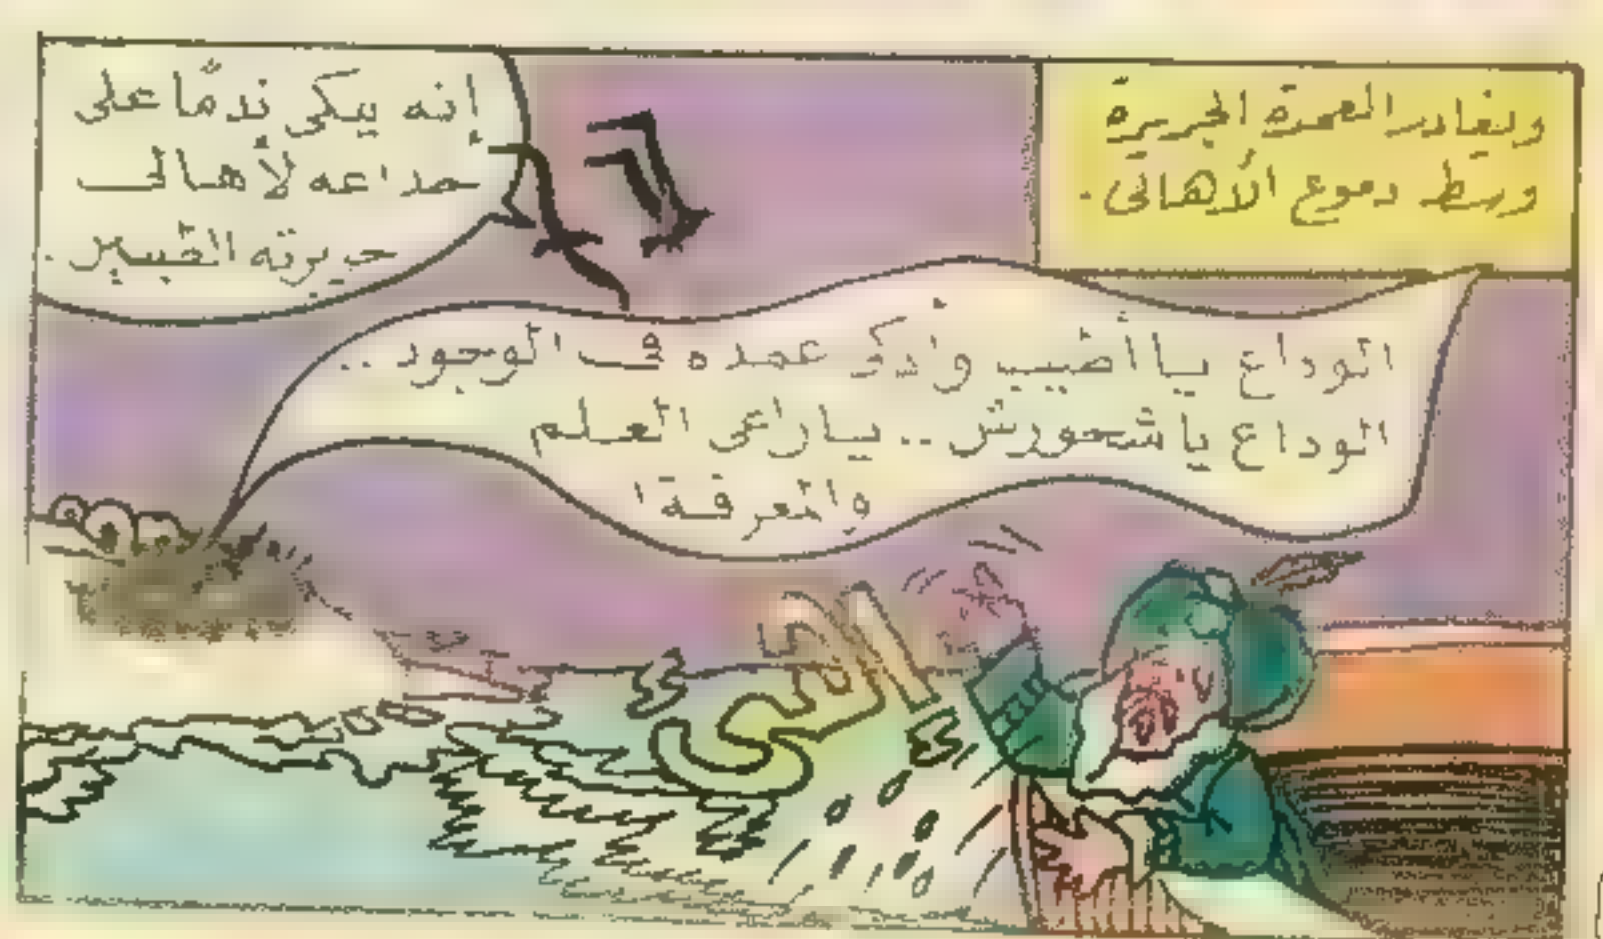 ويغادر العمدة الجزيرة
وسط دموع الأهالى .
إنه يبكى ندمًا على
خداعه لأهالى
جزيرته الطيبين .
الوداع يا أطيب وأذكى عمده فى الوجود ..
الوداع يا شمهورش .. يا راعى العلم
والمعرفة !
ى ى ى